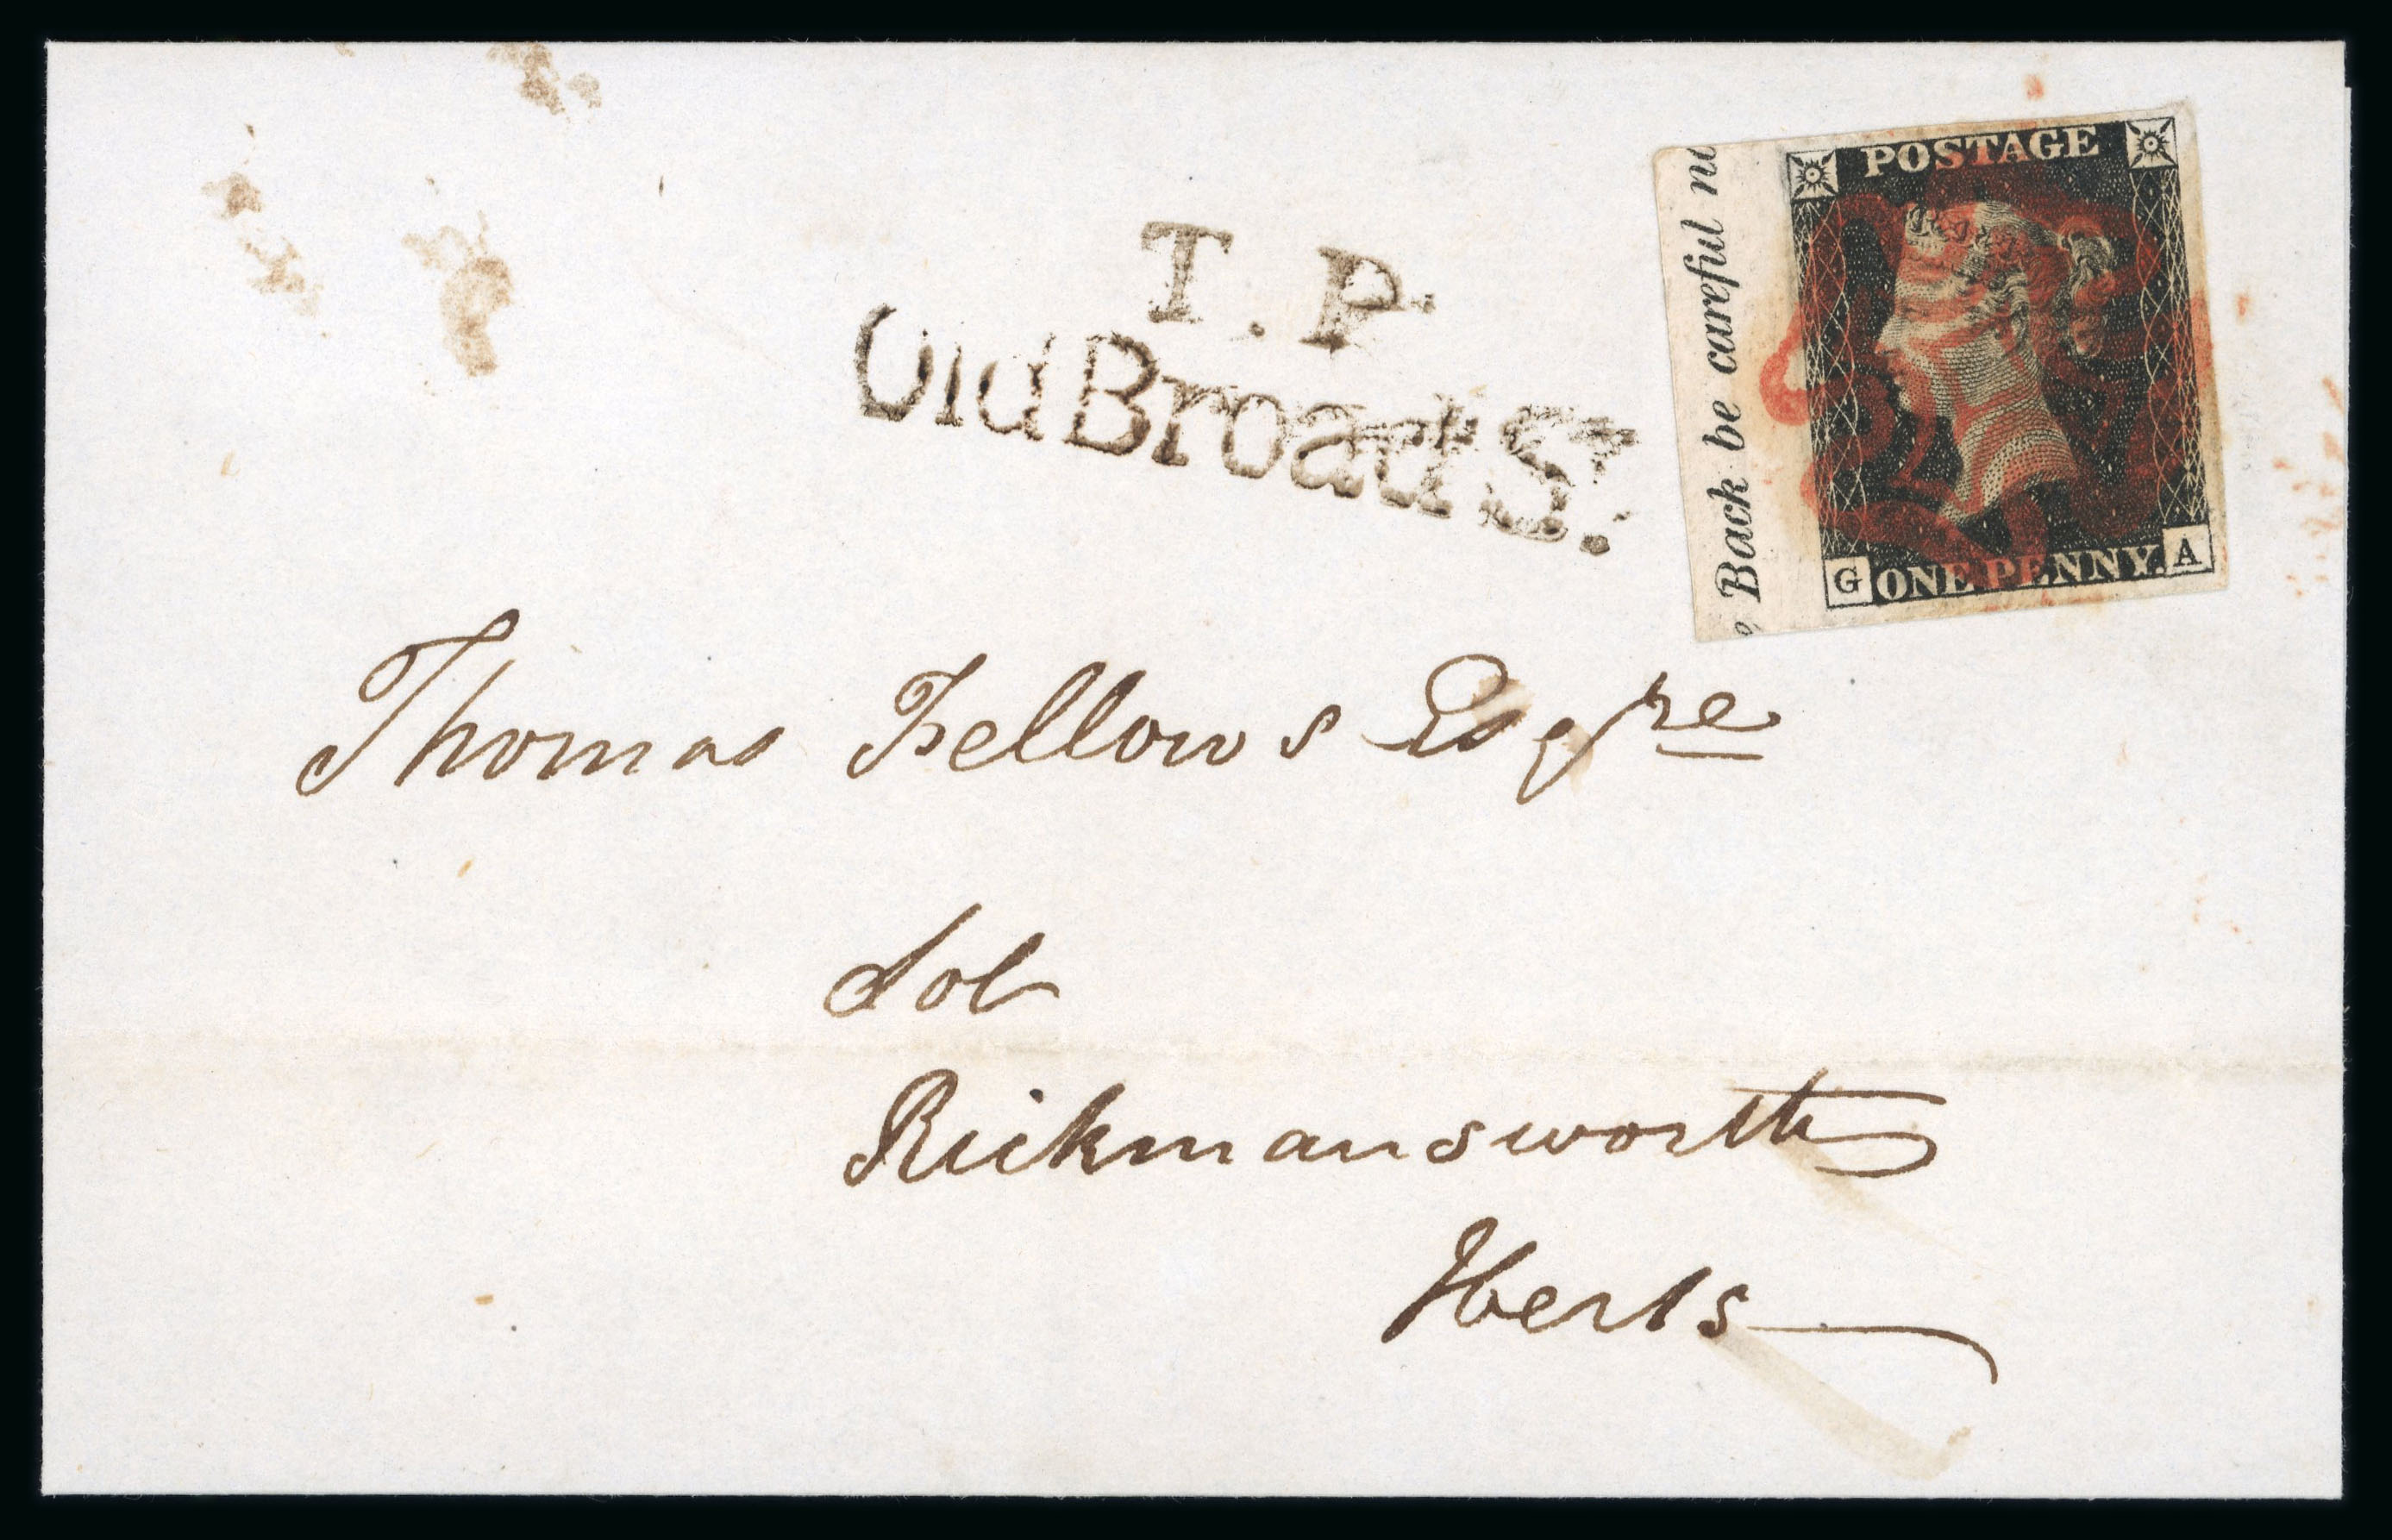 T.P.
Old Broad St.
, Back be careful no
POSTAGE
G ONE PENNY. A
Thomas Fellows Esqre
Rickmansworth
Herts